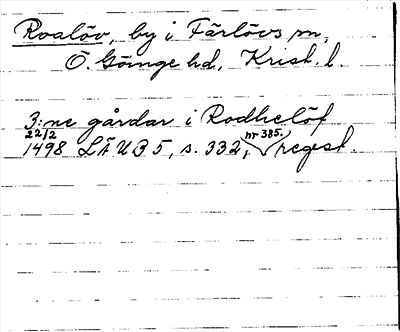 Roalöv, by i Färlövs sn,
Ö. Göinge hd, Krist. l.
3:ne gårdar i Rodhelöf
22/2
1498 LÄUB 5, s. 332, nr 385. regest.